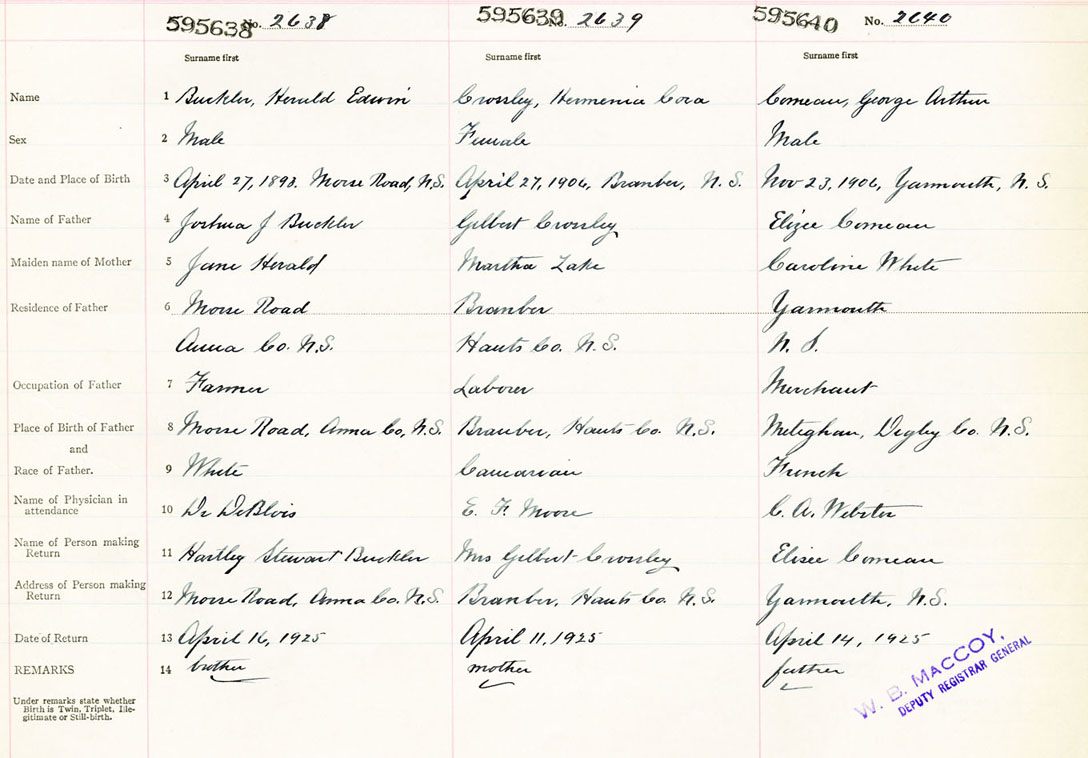 595638 No. 2638 595639 No. 2639 595640 No. 2640
Surname first Surname first Surname first
Name 1 Buckler, Herald Edwin Crossley, Hermenia Cora Comeau, George Arthur
Sex 2 Male Female Male
Date and Place of Birth 3 April 27, 1898. Morse Road, N.S. April 27, 1906, Bramber, N.S. Nov 23, 1906, Yarmouth, N.S.
Name of Father 4 Joshua J Buckler Gilbert Crossley Elizee Comeau
Maiden name of Mother 5 Jane Herald Martha Lake Caroline White
Residence of Father 6 Morse Road Bramber Yarmouth
Anna Co. N.S. Hants Co. N.S. N.S.
Occupation of Father 7 Farmer Laborer Merchant
Place of Birth of Father 8 Morse Road, Anna Co, N.S. Bramber, Hants Co. N.S. Meteghan, Digby Co. N.S.
and
Race of Father. 9 White French
Name of Physician in
attendance 10 Dr DeBlois E. F. Moore C. A. Webster
Name of Person making
Return 11 Hartley Stewart Buckler Mrs Gilbert Crossley Elisee Comeau
Address of Person making
Return 12 Morse Road, Anna Co. N.S. Bramber, Hants Co. N.S. Yarmouth, N.S.
Date of Return 13 April 16, 1925 April 11, 1925 April 14, 1925
REMARKS 14 brother mother father
Under remarks state whether
Birth is Twin, Triplet, Ille-
gitimate or Still-birth.
W. B. MACCOY,
DEPUTY REGISTRAR GENERAL